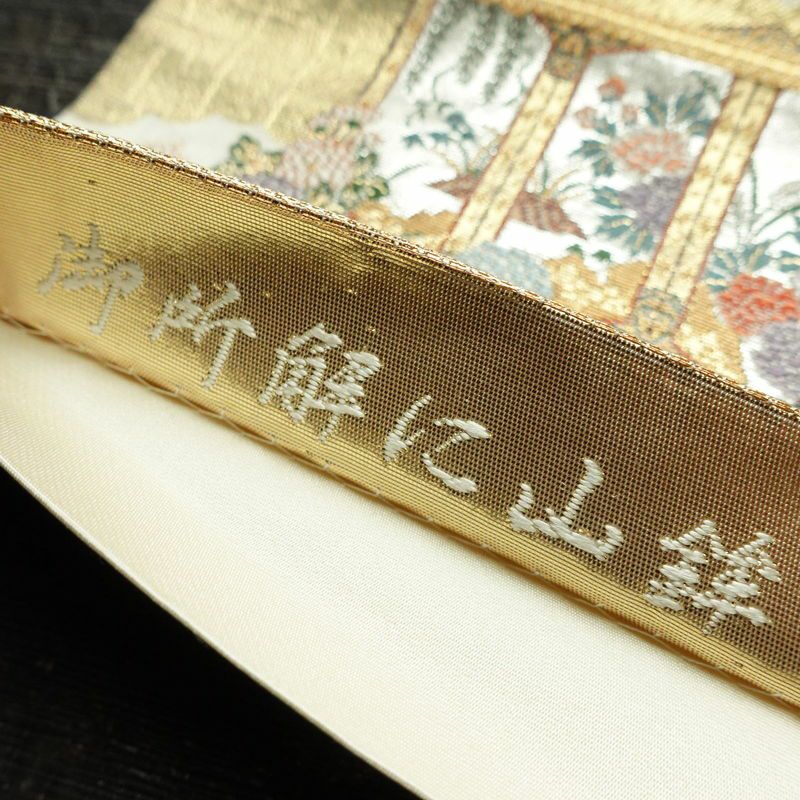 御所解に山鉾